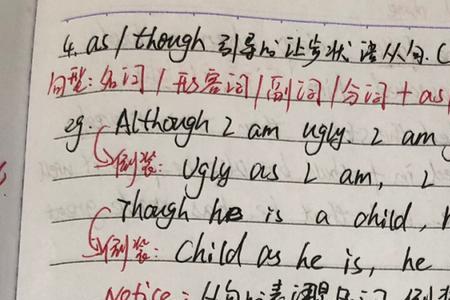 4. as / though 引导的让步状语从句. (
句型: 名词 / 形容词 / 副词 / 分词 + as
eg. Although I am ugly. I am
倒装: Ugly as I am, I
Though he is a child, h
倒装: Child as he is, he
Notice: